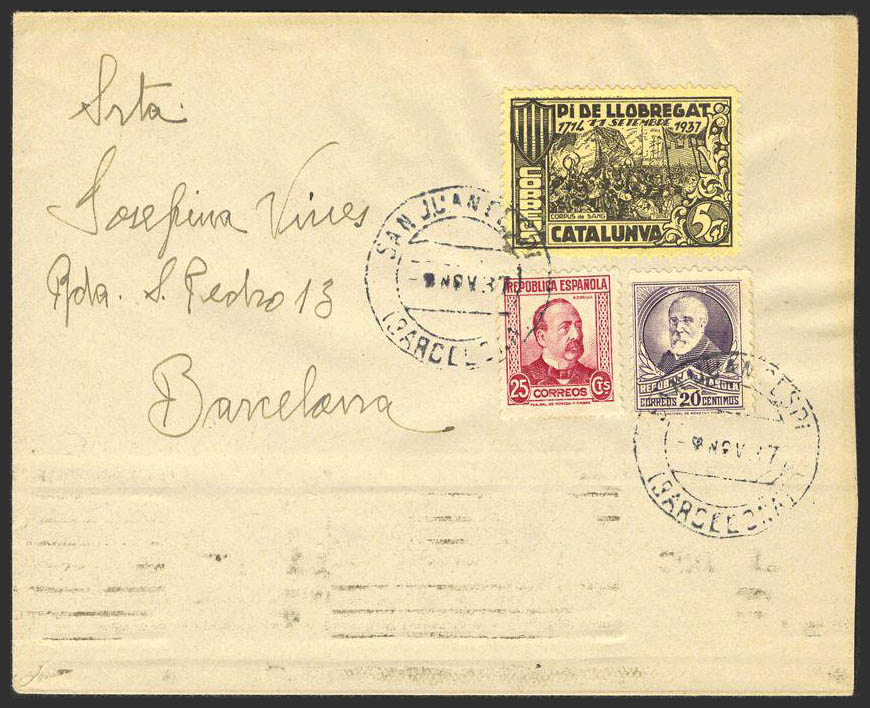 Srta.
Josefina Vives
Rda. S. Pedro 13
Barcelona
PI DE LLOBREGAT
1714 11 SETEMBRE 1937
CORREUS
CORPUS de SANG
CATALUNYA
5 CTS
REPUBLICA ESPAÑOLA
R. ZORRILLA
25 CTS
CORREOS
CORREOS 20 CENTIMOS
SAN JUAN
NOV 37
(BARCELONA)
NOV 37
(BARCELONA)